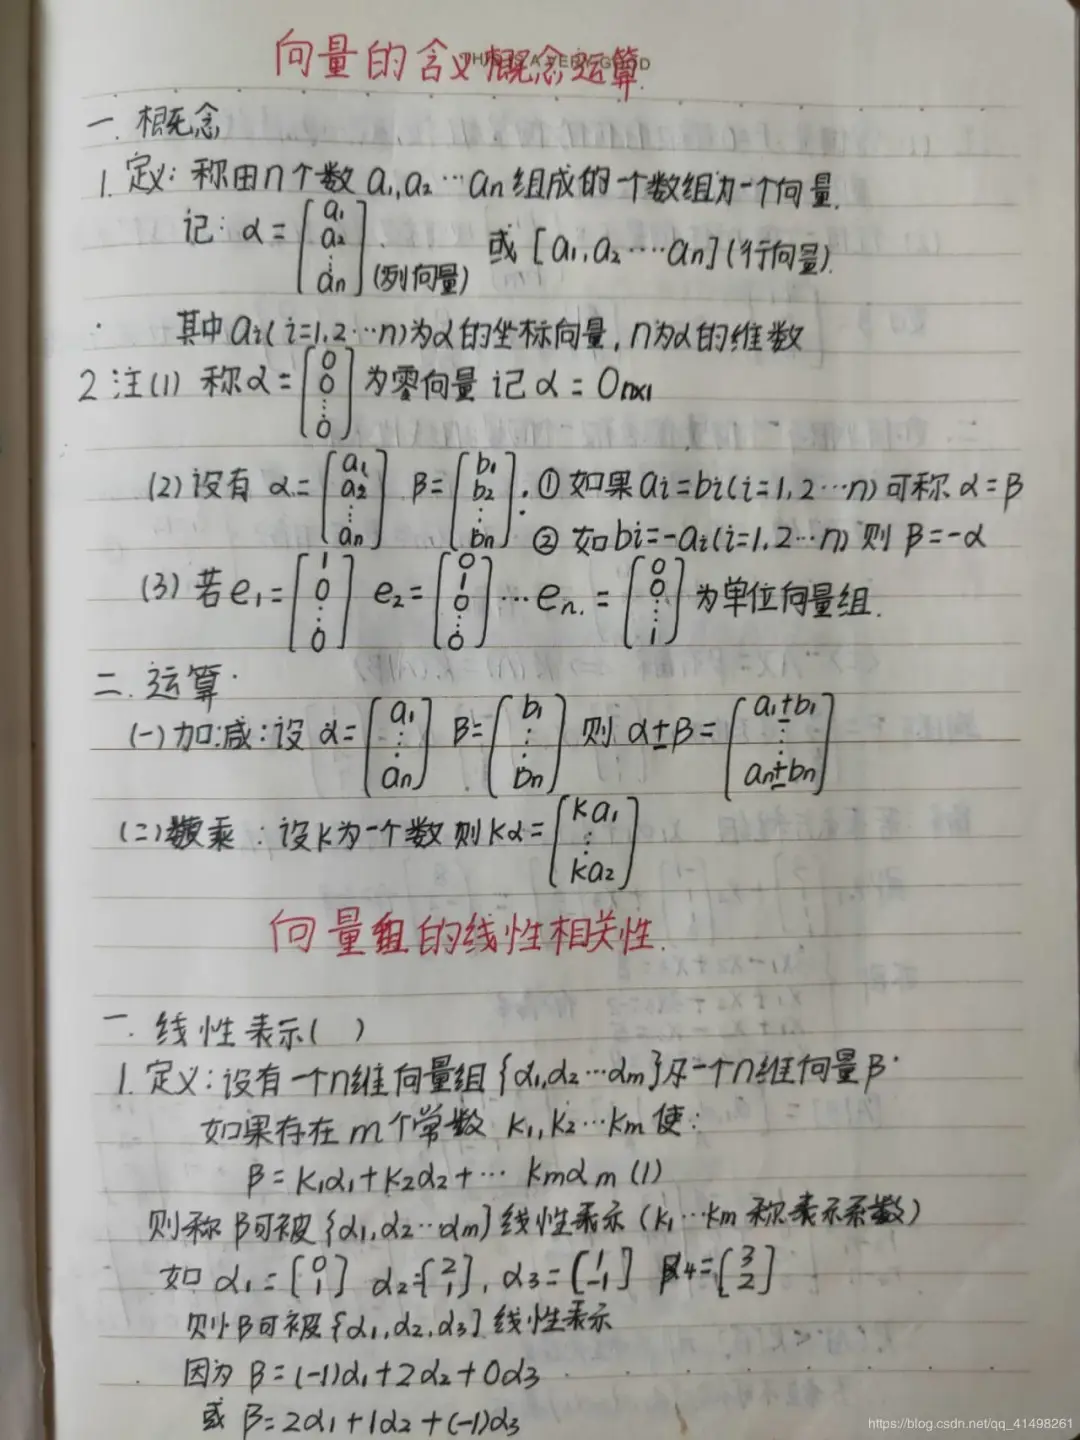 向量的含义概念运算
一. 概念
1. 定义: 称由n个数 a₁,a₂…an 组成的一个数组为一个向量.
记: α = [a₁ a₂ ⋮ an] (列向量) 或 [a₁,a₂…‥an] (行向量).
其中ai(i=1,2…n)为α的坐标向量, n为α的维数
2 注(1) 称α = [0 0 ⋮ 0] 为零向量 记 α = 0n×1
(2) 设有 α = [a₁ a₂ ⋮ an] β = [b₁ b₂ ⋮ bn]. ① 如果ai=bi(i=1,2…n)可称 α=β
② 如bi=-ai(i=1,2…n) 则 β=-α
(3) 若e₁ = [1 0 ⋮ 0] e₂ = [0 1 0 ⋮ 0] …en. = [0 0 ⋮ 1] 为单位向量组.
二. 运算
(一)加减: 设 α = [a₁ ⋮ an] β = [b₁ ⋮ bn] 则 α±β = [a₁±b₁ ⋮ an±bn]
(二)数乘: 设k为一个数则kα = [ka₁ ⋮ ka₂]
向量组的线性相关性.
一. 线性表示( )
1. 定义: 设有一个n维向量组{α₁,α₂…αm}及一个n维向量β.
如果存在m个常数 k₁,k₂…km 使:
β=k₁α₁+k₂α₂+… kmαm (1)
则称β可被{α₁,α₂…αm}线性表示(k₁…km 称表示系数)
如 α₁=[0 1] α₂=[2 1], α₃=[1 -1] 4=[3 2]
则β可被{α₁,α₂,α₃}线性表示
因为 β=(-1)α₁+2α₂+0α₃
或 β=2α₁+1α₂+(-1)α₃
https://blog.csdn.net/qq_41498261